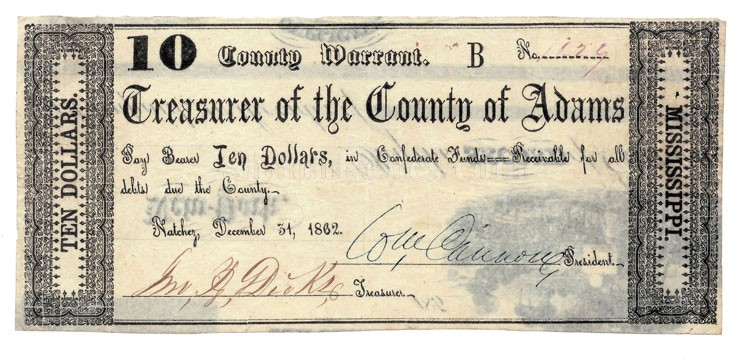 10 County Warrant. B No. 1129
Treasurer of the County of Adams
Pay Bearer Ten Dollars, in Confederate Funds Receivable for all
debts due the County.
Natchez, December 31, 1862.
Wm Cannon, President.
Jno. R. Dicks Treasurer.
TEN DOLLARS.
MISSISSIPPI.
New-York.